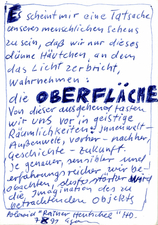 Es scheint mir eine Tatsache
unseres menschlichen Sehens
zu sein, daß wir nur dieses
dünne Häutchen an dem
das Licht zerbricht,
wahrnehmen:
die OBERFLÄCHE
Von dieser ausgehend tasten
wir uns vor in geistige
Räumlichkeiten: Innenwelt -
Außenwelt, vorher - nachher,
Geschichte - Zukunft.
Je genauer, sensibler und
erfahrungsreicher wir be
obachten, desto stärker wird
die Imagination des zu
betrachtenden Objekts
"Rainer
HD.